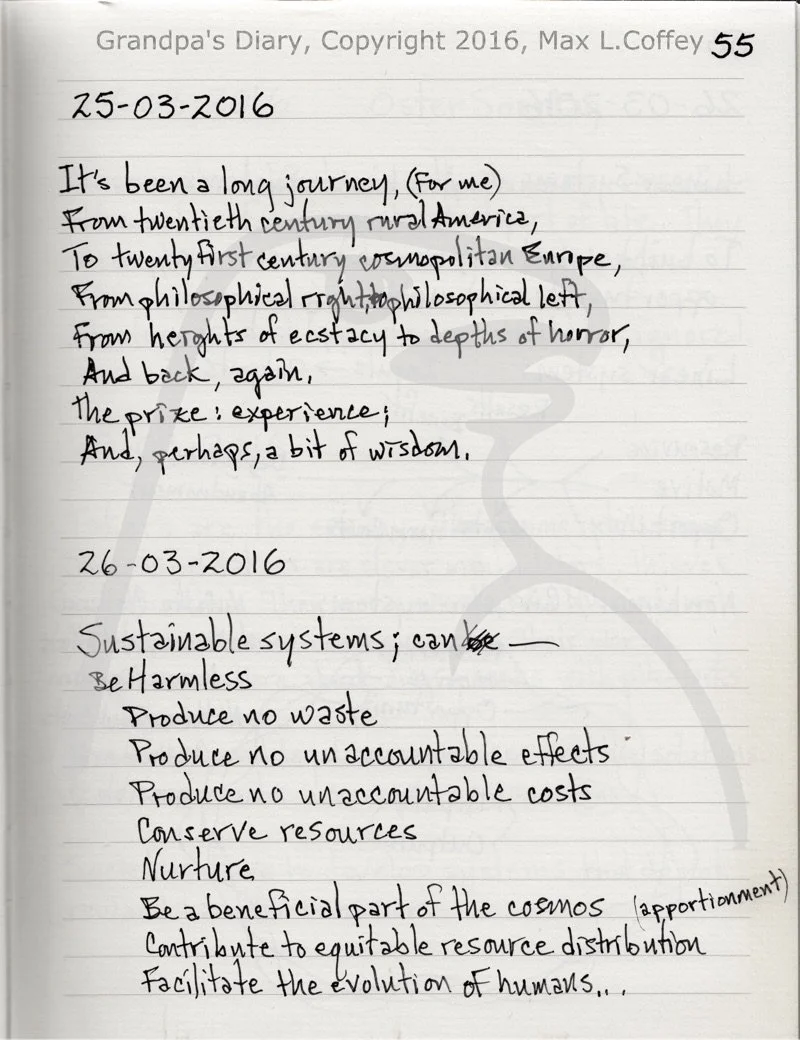 Grandpa's Diary, Copyright 2016, Max L.Coffey 55
25-03-2016
It's been a long journey, (For me)
From twentieth century rural America,
To twenty first century cosmopolitan Europe,
From philosophical right, to philosophical left,
From heights of ecstacy to depths of horror,
And back, again.
the prize: experience;
And, perhaps, a bit of wisdom.
26-03-2016
Sustainable systems; can —
Be Harmless
Produce no waste
Produce no unaccountable effects
Produce no unaccountable costs
Conserve resources
Nurture
Be a beneficial part of the cosmos (apportionment)
Contribute to equitable resource distribution
Facilitate the evolution of humans...